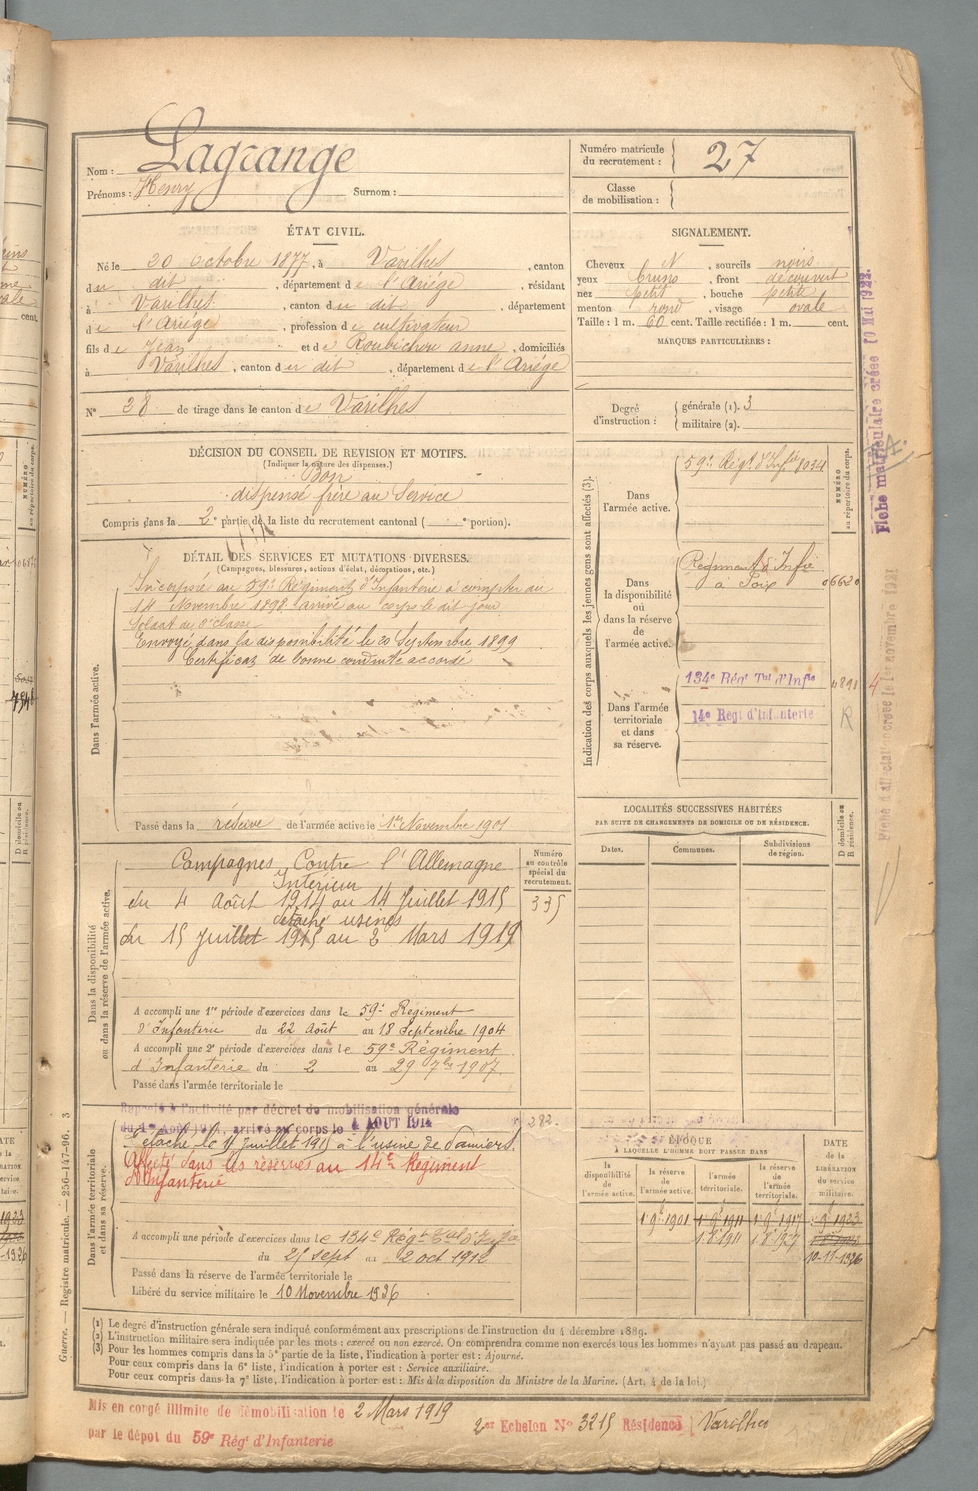 Nom : Lagrange
Prénoms : Henry Surnom :
Numéro matricule
du recrutement : 27
Classe
de mobilisation :
ÉTAT CIVIL.
Né le 20 Octobre 1877, à Varilhes, canton
du dit, département de l'Ariége, résidant
à Varilhes, canton du dit, département
de l'Ariége, profession de cultivateur
fils de Jean et de Roubichou anne, domiciliés
à Varilhes, canton du dit, département de l'Ariége
N° 28 de tirage dans le canton de Varilhes
SIGNALEMENT.
Cheveux N, sourcils noirs
yeux bruns, front découvert
nez petit, bouche petite
menton rond, visage ovale
Taille : 1 m. 60 cent. Taille rectifiée : 1 m. cent.
MARQUES PARTICULIÈRES :
Degré
d'instruction :
générale (1). 3
militaire (2).
DÉCISION DU CONSEIL DE REVISION ET MOTIFS.
(Indiquer la nature des dispenses.)
Bon
dispensé frère au Service
Compris dans la 2e partie de la liste du recrutement cantonal ( e portion).
DÉTAIL DES SERVICES ET MUTATIONS DIVERSES.
(Campagnes, blessures, actions d'éclat, décorations, etc.)
Dans l'armée active.
Incorporé au 59e Régiment d'Infanterie à compter du
14 Novembre 1898 arrivé au corps le dit jour
Soldat de 2e classe
Envoyé dans la disponibilité le 20 Septembre 1899
Certificat de bonne conduite accordé
Passé dans la réserve de l'armée active le 1er Novembre 1901
Indication des corps auxquels les jeunes gens sont affectés (3).
NUMÉRO
au répertoire du corps.
Dans
l'armée active.
59e Régt d'Infie 8034
Dans
la disponibilité
ou
dans la réserve
de
l'armée active.
Régiment d'Infie
à Foix
Dans l'armée
territoriale
et dans
sa réserve.
134e Régt Tal d'Infie
14e Régt d'Infanterie R
Fiche matriculaire créée 10 Mai 1922.
LOCALITÉS SUCCESSIVES HABITÉES
PAR SUITE DE CHANGEMENTS DE DOMICILE OU DE RÉSIDENCE.
Dates. Communes. Subdivisions
de région.
D domicile ou
R résidence.
Dans la disponibilité
ou dans la réserve de l'armée active.
Numéro
au contrôle
spécial du
recrutement.
335
Campagnes Contre l'Allemagne
Intérieur
du 4 Août 1914 au 14 Juillet 1915
détaché usines
du 15 Juillet 1915 au 2 Mars 1919
A accompli une 1re période d'exercices dans le 59e Régiment
d'Infanterie du 22 Août au 18 Septembre 1904
A accompli une 2e période d'exercices dans le 59e Régiment
d'Infanterie du 2 au 29 7bre 1907.
Passé dans l'armée territoriale le
Dans l'armée territoriale
et dans sa réserve.
Rappelé à l'activité par décret de mobilisation générale
du 1er Août 1914, arrivé au corps le 4 AOUT 1914
282
Détaché le 15 Juillet 1915 à l'usine de Pamiers.
Affecté dans les réserves au 14e Régiment
d'Infanterie
A accompli une période d'exercices dans le 134e Régt Tal d'Infie
du 25 sept au 2 oct 1912
Passé dans la réserve de l'armée territoriale le
Libéré du service militaire le 10 Novembre 1926
ÉPOQUE
À LAQUELLE L'HOMME DOIT PASSER DANS
la
disponibilité
de
l'armée active.
la réserve
de
l'armée active.
l'armée
territoriale.
la réserve
de
l'armée
territoriale.
DATE
de la
LIBÉRATION
du service
militaire.
1er 9bre 1901 1er 9bre 1911 1er 9bre 1917 9bre 1923
10-11-1926
(1) Le degré d'instruction générale sera indiqué conformément aux prescriptions de l'instruction du 4 décembre 1889.
(2) L'instruction militaire sera indiquée par les mots : exercé ou non exercé. On comprendra comme non exercés tous les hommes n'ayant pas passé au drapeau.
(3) Pour les hommes compris dans la 5e partie de la liste, l'indication à porter est : Ajourné.
Pour ceux compris dans la 6e liste, l'indication à porter est : Service auxiliaire.
Pour ceux compris dans la 7e liste, l'indication à porter est : Mis à la disposition du Ministre de la Marine. (Art. 4 de la loi.)
Guerre. — Registre matricule. — 256-147-96. 3
Mis en congé illimité de démobilisation le 2 Mars 1919
par le dépot du 59e Régt d'Infanterie
2me Echelon N° 3215 Résidence Varilhes